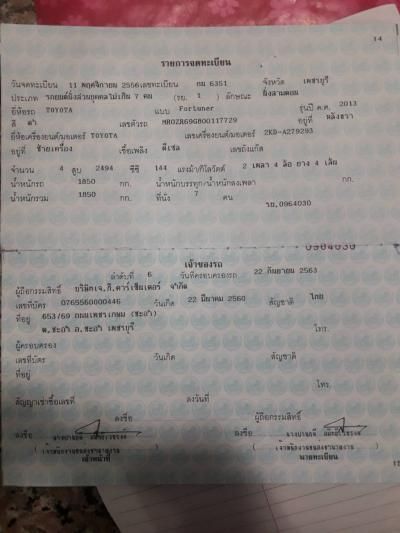 14
รายการจดทะเบียน
วันจดทะเบียน 11 พฤศจิกายน 2556 เลขทะเบียน กม 6351 จังหวัด เพชรบุรี
ประเภท รถยนต์นั่งส่วนบุคคลไม่เกิน 7 คน (รย. 1) ลักษณะ นั่งสามตอน
ยี่ห้อรถ TOYOTA แบบ Fortuner รุ่นปี ค.ศ. 2013
สี ดำ เลขตัวรถ MR0ZR69G800117729 อยู่ที่ ผนังขวา
ยี่ห้อเครื่องยนต์/มอเตอร์ TOYOTA เลขเครื่องยนต์/มอเตอร์ 2KD-A279293
อยู่ที่ ซ้ายเครื่อง เชื้อเพลิง ดีเซล เลขถังแก๊ส
จำนวน 4 สูบ 2494 ซีซี 144 แรงม้า/กิโลวัตต์ 2 เพลา 4 ล้อ ยาง 4 เส้น
น้ำหนักรถ 1850 กก. น้ำหนักบรรทุก/น้ำหนักลงเพลา กก.
น้ำหนักรวม 1850 กก. ที่นั่ง 7 คน
รย.0964030
0964030
เจ้าของรถ
ลำดับที่ 6 วันที่ครอบครองรถ 22 กันยายน 2563
ผู้ถือกรรมสิทธิ์ บริษัทเจ.ที.คาร์เซ็นเตอร์ จำกัด
เลขที่บัตร 0765560000446 วันเกิด 22 มีนาคม 2560 สัญชาติ ไทย
ที่อยู่ 653/69 ถนนเพชรเกษม (ชะอำ)
ต.ชะอำ อ.ชะอำ เพชรบุรี โทร.
ผู้ครอบครอง
เลขที่บัตร วันเกิด สัญชาติ
ที่อยู่
โทร.
สัญญาเช่าซื้อเลขที่ ลงวันที่
ลงชื่อ ผู้ถือกรรมสิทธิ์
ลงชื่อ ลงชื่อ
เจ้าหน้าที่ นายทะเบียน
15